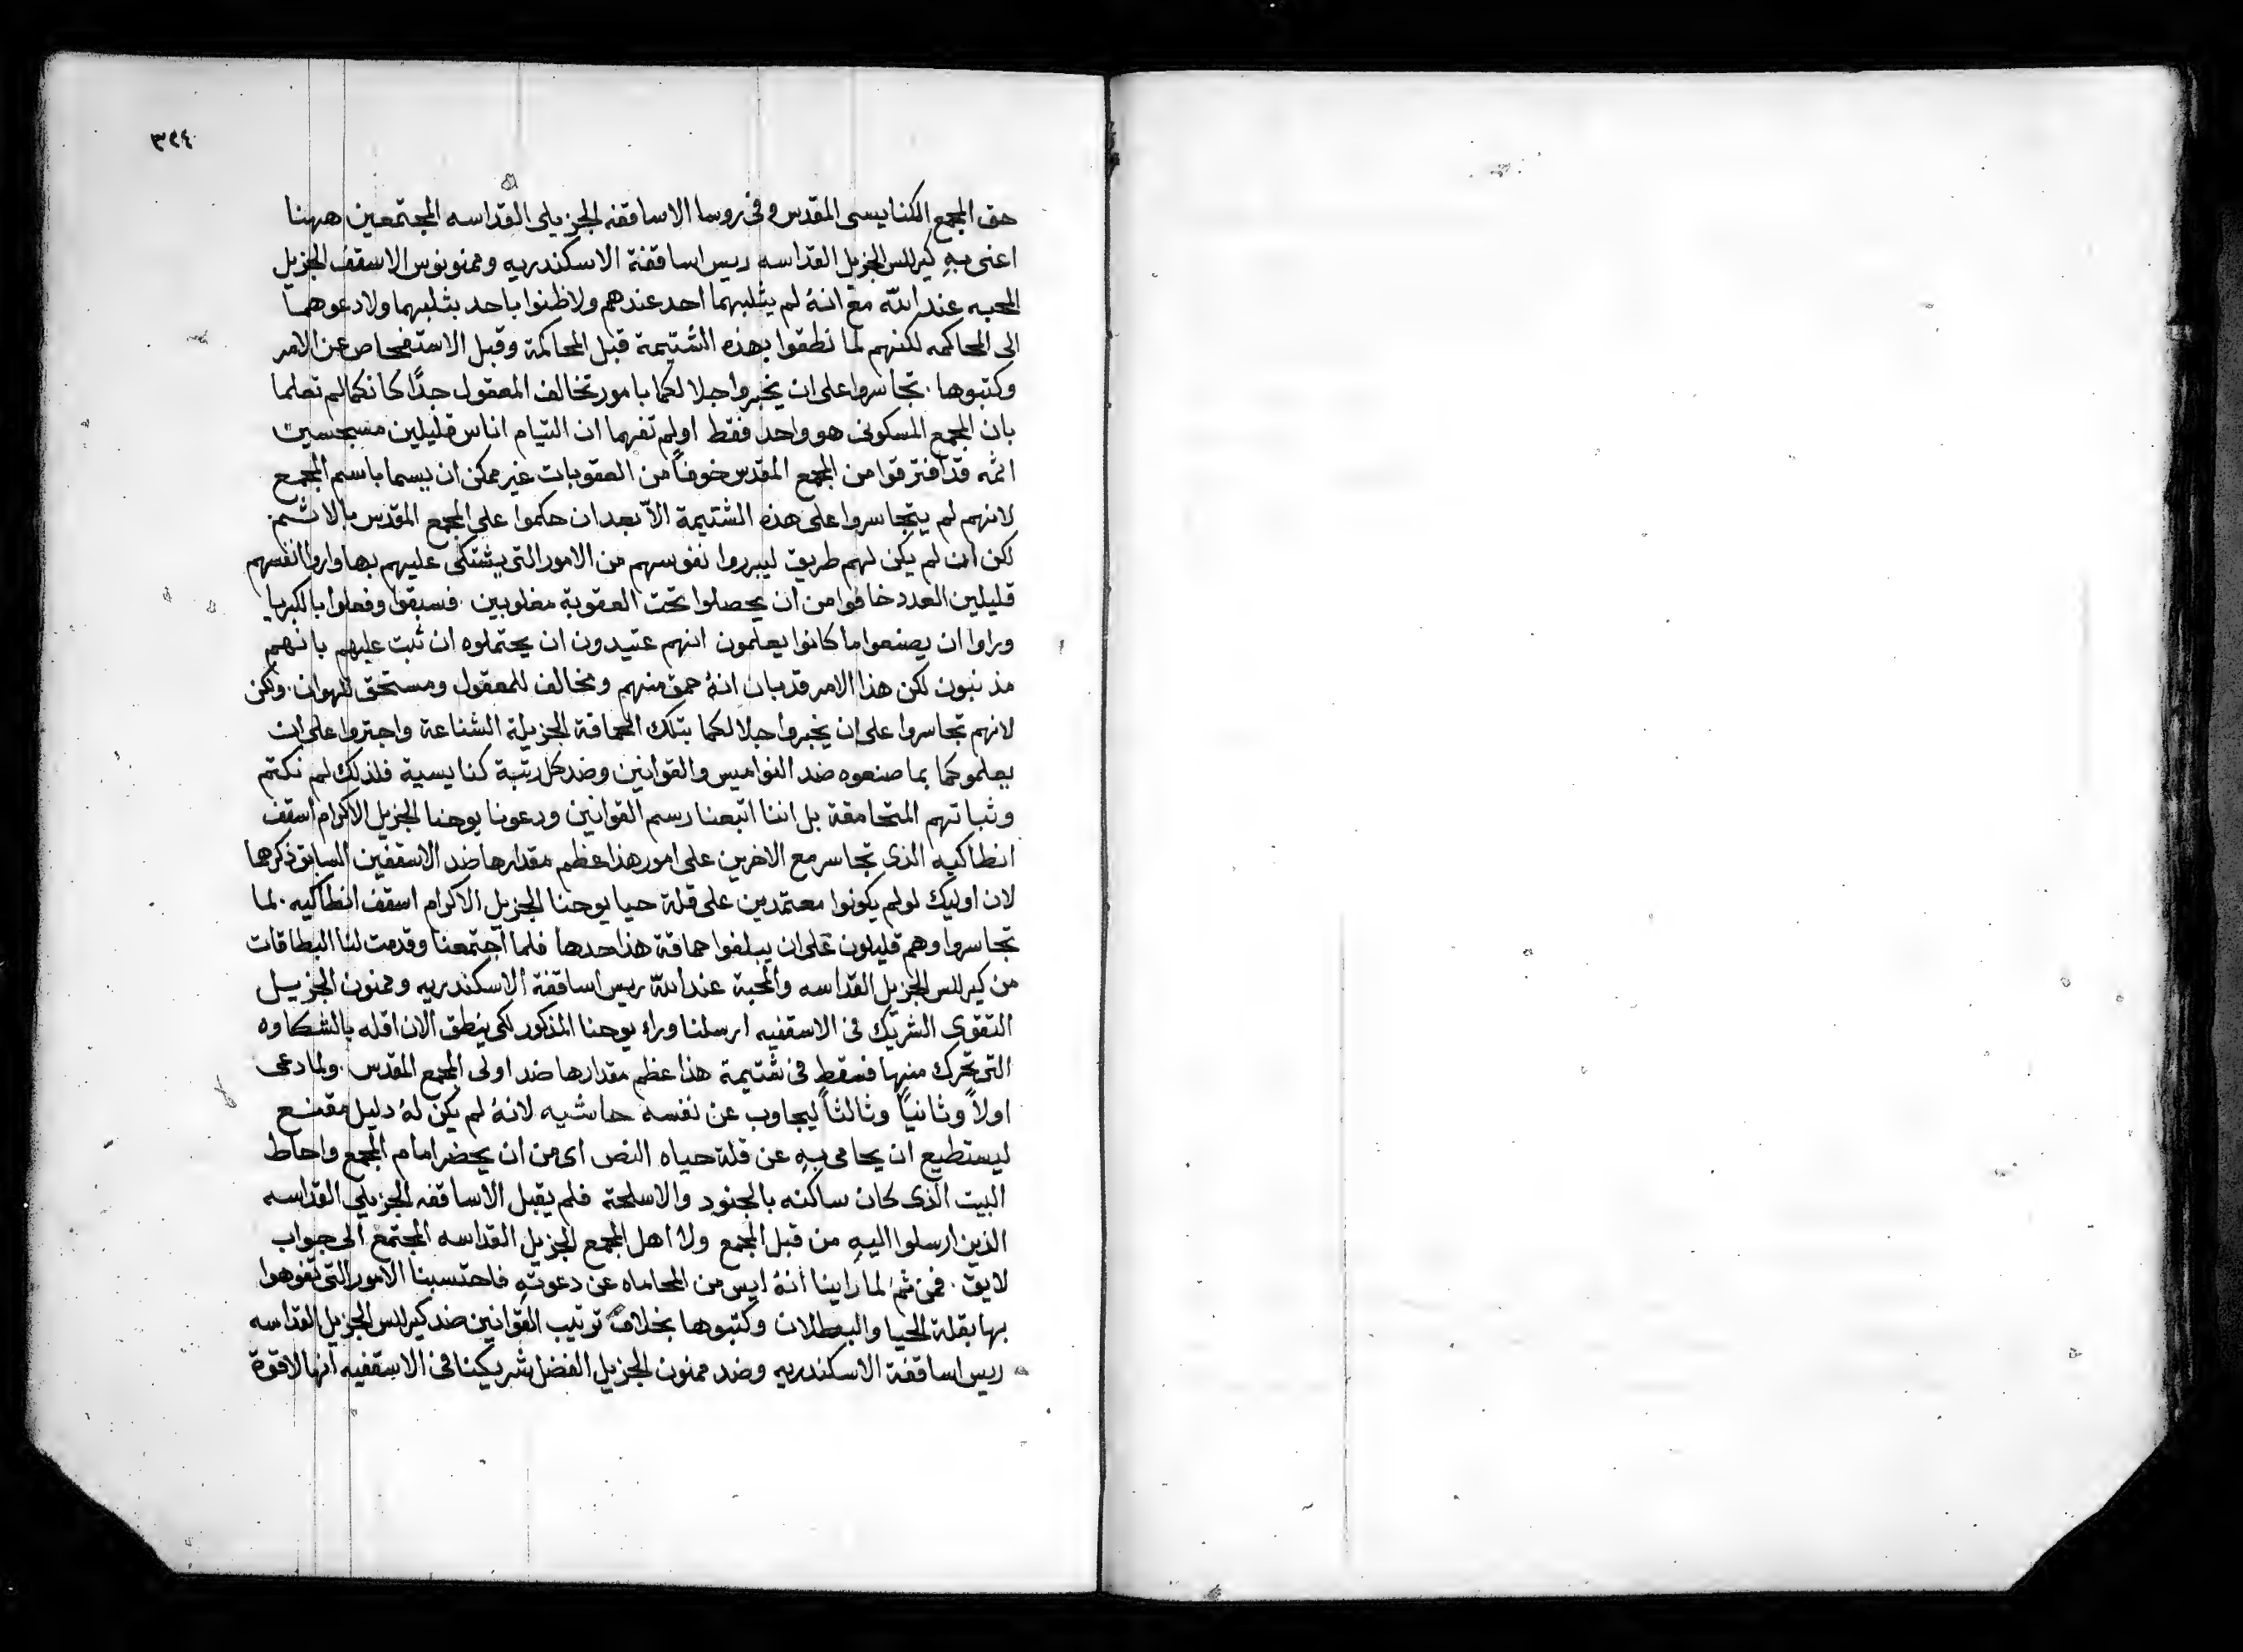 ٣٢٤
حق المجمع الكنايسى المقدس وفى روسا الاساقفه الجزيلى القداسه المجتمعين ههنا
اعنى بهِ كيرللس الجزيل القداسه ريس اساقفة الاسكندريه وممنونوس الاسقف الجزيل
المحبه عند الله مع انهُ لم يثلبهما احد عندهم ولا ظنوا باحد بثلبهما ولا دعوهما
الى المحاكمه لكنهم لما نطقوا بهذه الشتيمة قبل المحاكمة وقبل الاستفحاص عن الامر
وكتبوها. تجاسروا على ان يخبروا جلالتكما بامور تخالف المعقول جدًا كانكما لم تعلما
بان المجمع المسكونى هو واحد فقط اولم تفهما ان التيام اناس قليلين مسبجسين
اثمه قد افترقوا من المجمع المقدس خوفاً من العقوبات غير ممكن ان يسما باسم المجمع
لانهم لم يتجاسروا على هذه الشتيمة الاّ بعد ان حكموا على المجمع المقدس بالاثم.
لكن اذ لم يكن لهم طريق ليبرروا نفوسهم من الامور التى يشتكى عليهم بها وراوا انفسهم
قليلين العدد خافوا من ان يحصلوا تحت العقوبة مغلوبين. فسبقوا وفعلوا بالكبريا
وراوا ان يصنعوا ما كانوا يعلمون انهم عتيدون ان يحتملوه ان ثبت عليهم بانهم
مذنبون لكن هذا الامر قد بان انهُ حمق منهم ومخالف للمعقول ومستحق للهوان. ولكن
لانهم تجاسروا على ان يخبروا جلالتكما بتلك الحماقة الجزيلة الشناعة واجتروا على ان
يعلموكما بما صنعوه ضد النواميس والقوانين وضد كل رتبة كنايسية فلذلك لم نكتم
وثباتهم المتحامقة بل اننا اتبعنا رسم القوانين ودعونا يوحنا الجزيل الاكرام اسقف
انطاكيه الذى تجاسر مع الاخرين على امور هذا عظم مقدارها ضد الاسقفين السابق ذكرهما
لان اوليك لو لم يكونوا معتمدين على قلة حيا يوحنا الجزيل الاكرام اسقف انطاكيه. لما
تجاسروا وهم قليلون على ان يبلغوا حماقة هذا حدها فلما اجتمعنا وقدمت لنا البطاقات
من كيرللس الجزيل القداسه والمحبة عند الله ريس اساقفة الاسكندريه وممنون الجزيل
التقوى الشريك فى الاسقفيه ارسلنا وراء يوحنا المذكور لكى ينطق الان اقله بالشكاوه
التى تحرك منها فسقط فى شتيمة هذا عظم مقدارها ضد اولى المجمع المقدس. ولما دعى
اولاً وثانياً وثالثاً ليجاوب عن نفسه حاشيه لانهُ لم يكن لهُ دليل مقنع
ليستطيع ان يحامى بهِ عن قلة حياه النص اى من ان يحضر امام المجمع واحاط
البيت الذى كان ساكنه بالجنود والاسلحة فلم يقبل الاساقفه الجزيلى القداسه
الذين ارسلوا اليهِ من قبل المجمع ولا اهل المجمع الجزيل القداسه المجتمع الى جواب
لايق. فمن ثم لما راينا انهُ ايس من المحاماه عن دعوتهِ فاحتسبنا الامور التى تفوهوا
بها بقلة الحيا والبطلان وكتبوها بخلاف ترتيب القوانين ضد كيرللس الجزيل القداسه
ريس اساقفة الاسكندريه وضد ممنون الجزيل الفضل شريكينا فى الاسقفيه انها لا قوة